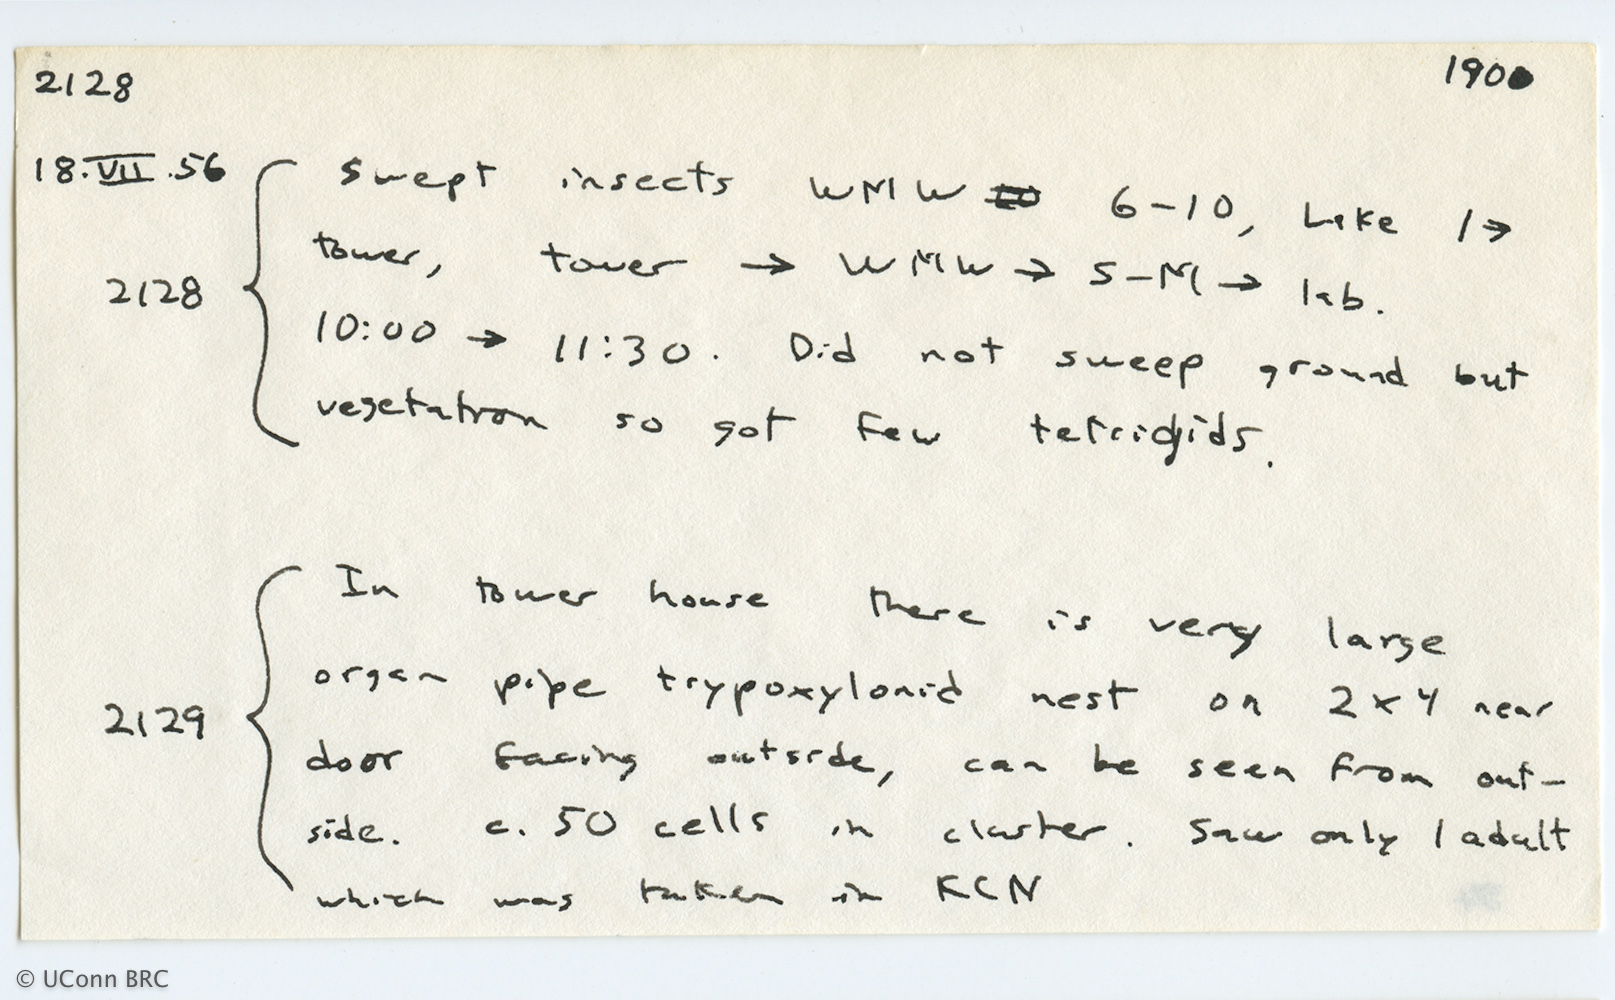 2128 1900
18.VII.56 Swept insects WMW 6-10, Lake 1→
tower, tower → WMW → S-M → lab.
2128
10:00 → 11:30. Did not sweep ground but
vegetation so got few tetrigids.
In tower house there is very large
organ pipe trypoxylonid nest on 2x4 near
2129
door facing outside, can be seen from out-
side. c. 50 cells in cluster. Saw only 1 adult
which was taken in KCN
© UConn BRC